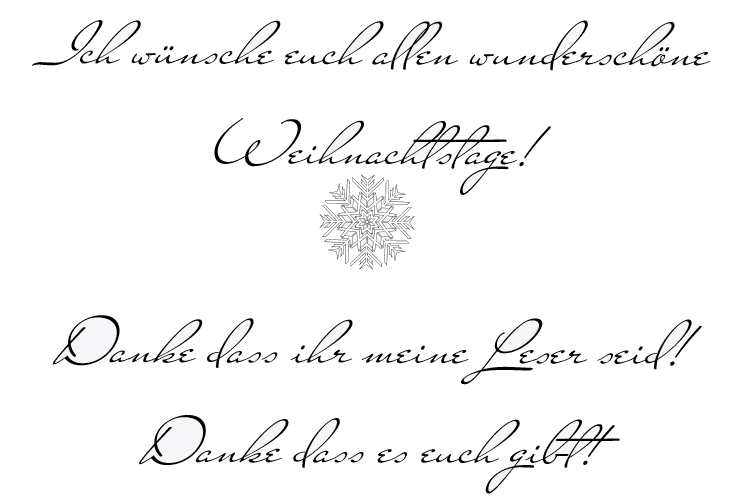 Ich wünsche euch allen wunderschöne
Weihnachtstage!
Danke dass ihr meine Leser seid!
Danke dass es euch gibt!